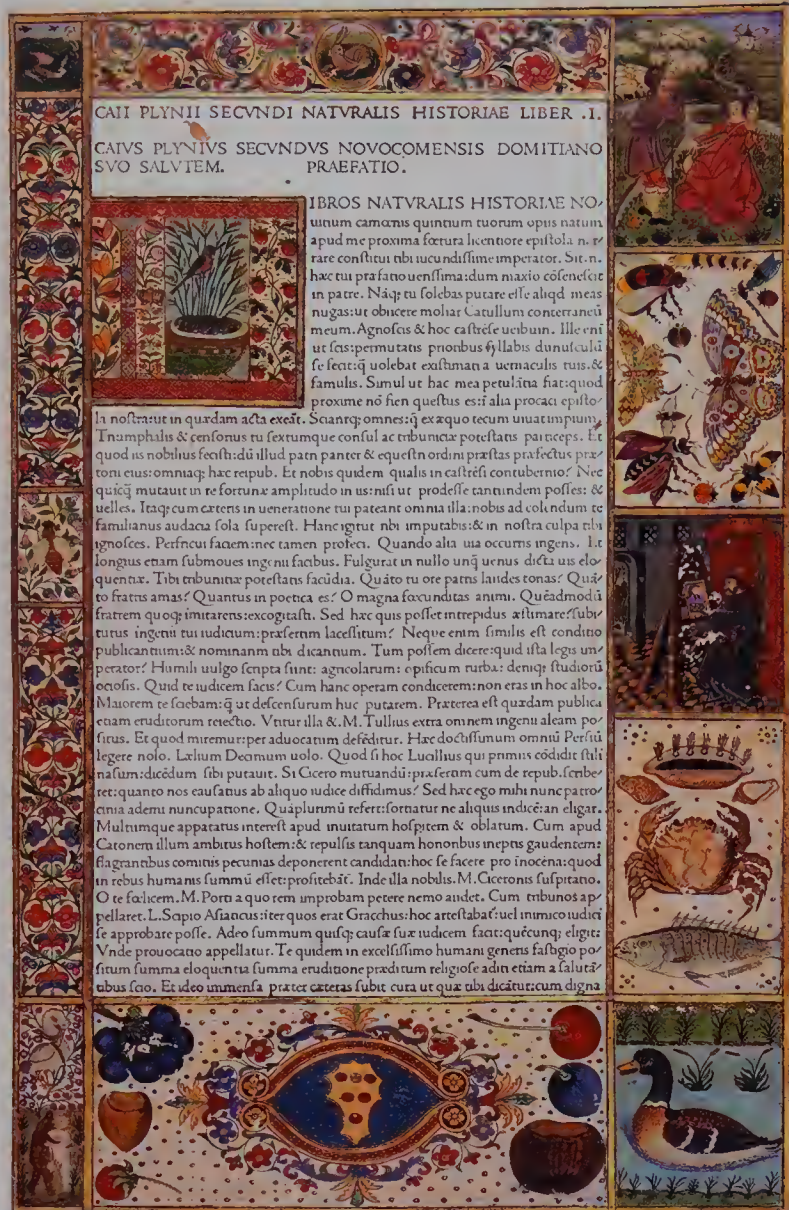 CAII PLYNII SECVNDI NATVRALIS HISTORIAE LIBER .I.
CAIVS PLYNIVS SECVNDVS NOVOCOMENSIS DOMITIANO
SVO SALVTEM. PRAEFATIO.
IBROS NATVRALIS HISTORIAE NO/
uitium camœnis quiritium tuorum opus natum
apud me proxima fœtura licentiore epistola n. r/
rare constitui tibi iucundissime imperator. Sit.n.
hæc tui præfatio uerissima:dum maxio cōsenescit
in patre. Náq; tu solebas putare esse aliqd meas
nugas:ut obiicere moliar Catullum conterraneū
meum. Agnoscis & hoc castrése uerbum. Ille eni
ut scis:permutatis prioribus syllabis duriusculū
se fecit:q̄ uolebat existimari a uernaculis tuis.&
famulis. Simul ut hac mea petulátia fiat:quod
proxime nō fieri questus es:ī alia procaci episto/
la nostra:ut in quædam acta exeāt. Sciantq; omnes:q̄ exæquo tecum uiuat impium.
Triumphalis & censorius tu sextumque consul ac tribuniciæ potestatis particeps. Et
quod iis nobilius fecisti:dū illud patri pariter & equestri ordini præstas præfectus præ/
torii eius:omniaq; hæc reipub. Et nobis quidem qualis in castrési contubernio? Nec
quicq̄ mutauit in te fortunæ amplitudo in us:nisi ut prodesse tantundem posses: &
uelles. Itaq; cum cæteris in ueneratione tui pateant omnia illa:nobis ad colendum te
familiarius audacia sola superest. Hanc igitur tibi imputabis:& in nostra culpa tibi
ignosces. Perfricui faciem:nec tamen profeci. Quando alia uia occurris ingens. Et
longius etiam submoues ingenii facibus. Fulgurat in nullo unq̄ uerius dicta uis elo
quentiæ. Tibi tribunitiæ potestatis facūdia. Quáto tu ore patris laudes tonas? Quá/
to fratris amas? Quantus in poetica es? O magna fœcunditas animi. Quéadmodū
fratrem quoq; imitareris:excogitasti. Sed hæc quis posset intrepidus æstimare?subi/
turus ingenii tui iudicium:præsertim lacessitum? Neque enim similis est conditio
publicantium:& nominatim tibi dicantium. Tum possem dicere:quid ista legis im/
perator? Humili uulgo scripta sunt: agricolarum: opificum turbæ: deniq; studiorū
ociosis. Quid te iudicem facis? Cum hanc operam condicerem:non eras in hoc albo.
Maiorem te sciebam:q̄ ut descensurum huc putarem. Præterea est quædam publica
etiam eruditorum reiectio. Vtitur illa &.M.Tullius extra omnem ingenii aleam po/
situs. Et quod miremur:per aduocatum deféditur. Hæc doctissimum omniū Persiū
legere nolo. Lælium Decimum uolo. Quod si hoc Lucillius qui primus cōdidit stili
nasum:dicédum sibi putauit. Si Cicero mutuandū:præsertim cum de repub.scribe/
ret:quanto nos causatius ab aliquo iudice diffidimus? Sed hæc ego mihi nunc patro/
cinia ademi nuncupatione. Quáplurimū refert:sortiatur ne aliquis iudicé:an eligat.
Multumque apparatus interest apud inuitatum hospitem & oblatum. Cum apud
Catonem illum ambitus hostem:& repulsis tanquam honoribus ineptis gaudentem:
flagrantibus comitiis pecunias deponerent candidati:hoc se facere pro inocéna:quod
in rebus humanis summū esset:profitebát. Inde illa nobilis.M.Ciceronis suspiratio.
O te fœlicem.M.Porti a quo rem improbam petere nemo audet. Cum tribunos ap/
pellaret.L.Scipio Asiaticus:iter quos erat Gracchus:hoc attestabat:uel inimico iudici
se approbare posse. Adeo summum quisq; causæ suæ iudicem facit:quécunq; eligit:
Vnde prouocatio appellatur. Te quidem in excelsissimo humani generis fastigio po/
situm summa eloquentia summa eruditione præditum religiose adiri etiam a salutá/
tibus scio. Et ideo immensa præter cæteras subit cura ut quæ tibi dicátur:cum digna